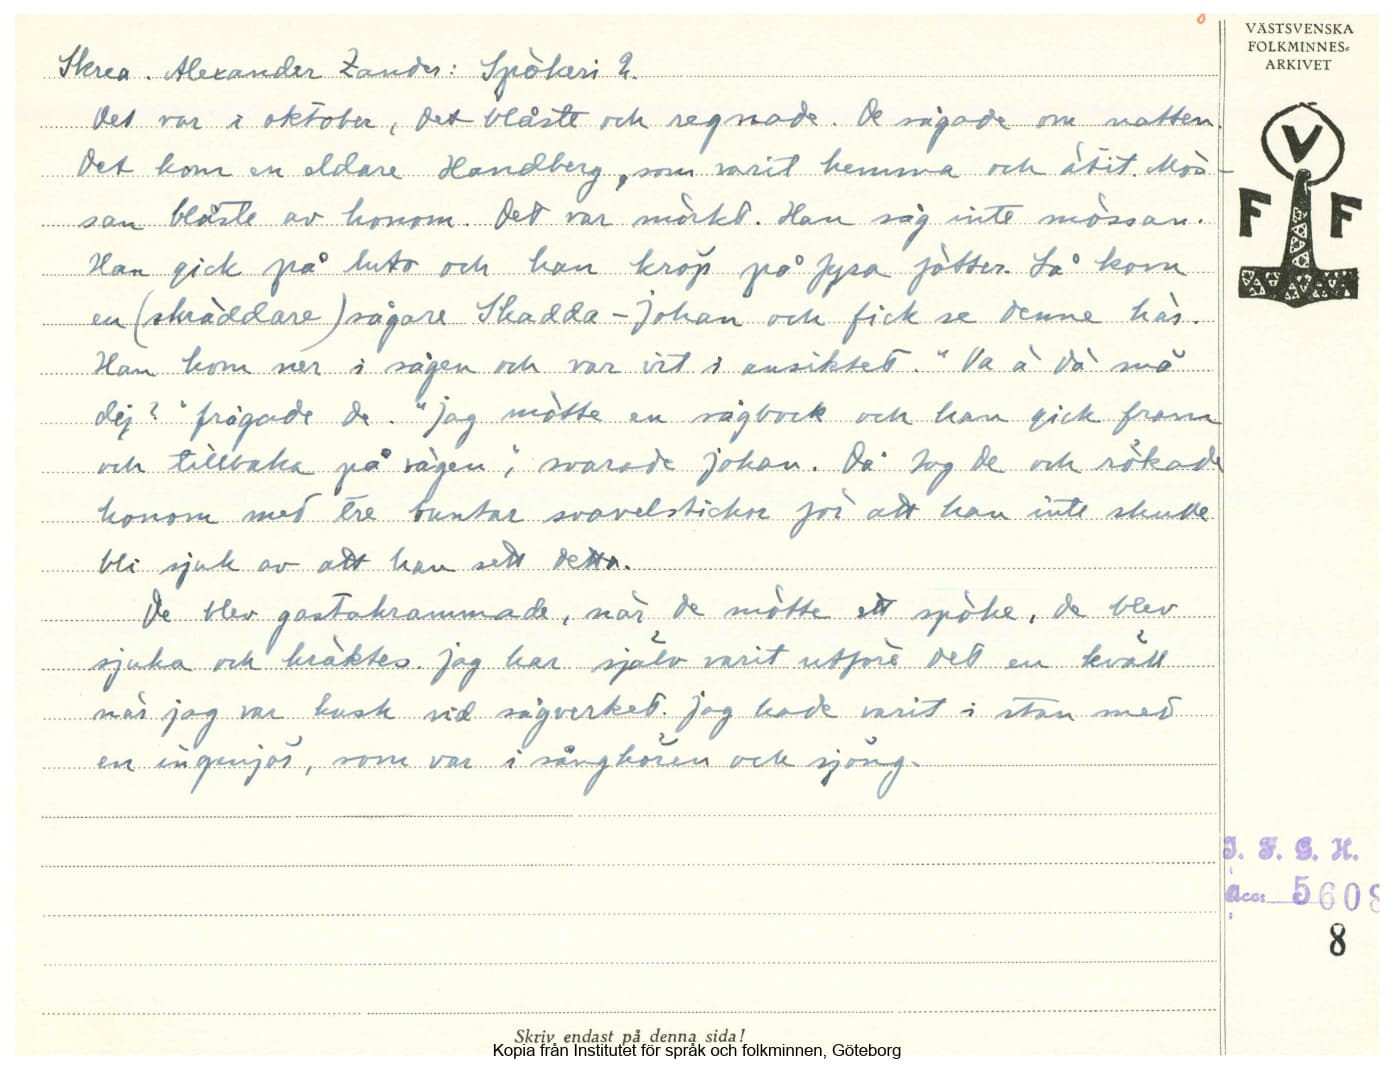 VÄSTSVENSKA
FOLKMINNES-
ARKIVET
V
F F
Skrea. Alexander Zander: Spökeri 2.
Det var i oktober, det blåste och regnade. De sågade om natten.
Det kom en eldare Handberg, som varit hemma och ätit. Mös-
san blåste av honom. Det var mörkt. Han såg inte mössan.
Han gick på huto och han kröp på fyra fötter. Så kom
en (skräddare) sågare Skadda-Johan och fick se denne här.
Han kom ner i sågen och var vit i ansiktet. "Va ä dä må
dej?" frågade de. "Jag mötte en sågbock och han gick fram
och tillbaka på vägen", svarade Johan. Då tog de och rökade
honom med tre buntar svavelstickor för att han inte skulle
bli sjuk av att han sett detta.
De blev gastakrammade, när de mötte ett spöke, de blev
sjuka och kräktes. Jag har själv varit utför det en kväll
när jag var kusk vid sågverket. Jag hade varit i stan med
en ingenjör, som var i sångkören och sjöng.
I. F. G. H.
Acc: 5608
8
Skriv endast på denna sida!
Kopia från Institutet för språk och folkminnen, Göteborg